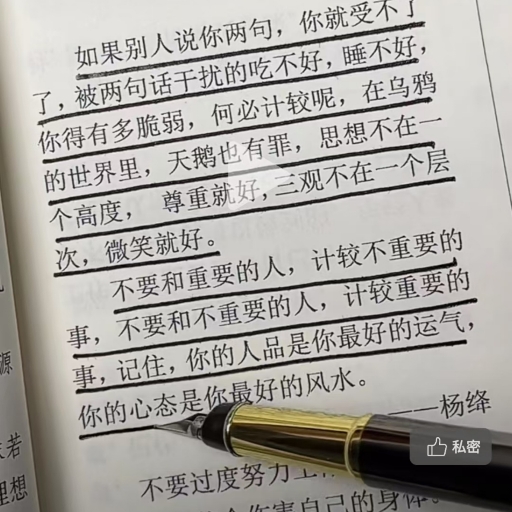 如果别人说你两句，你就受不了
了，被两句话干扰的吃不好，睡不好，
你得有多脆弱，何必计较呢，在乌鸦
的世界里，天鹅也有罪，思想不在一
个高度， 尊重就好，三观不在一个层
次，微笑就好。
不要和重要的人，计较不重要的
事，不要和不重要的人，计较重要的
事，记住，你的人品是你最好的运气，
你的心态是你最好的风水。
——杨绛
私密
不要过度努力工
伤害自己的身体。
源
若
理想